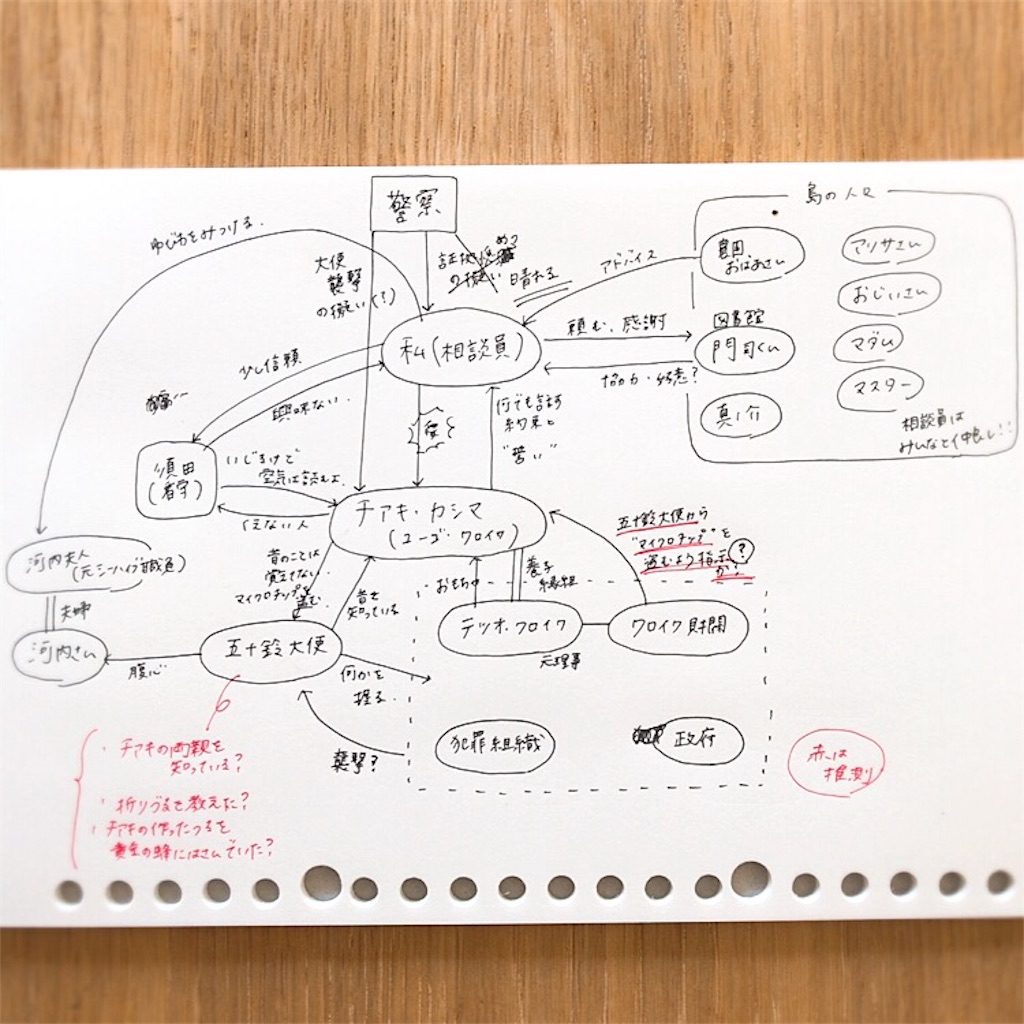 警察
島の人々
ゆびわをみつける.
大使
襲撃
の疑い(?)
の疑い 晴れる
アドバイス
おばあさん
アリサさん
おじいさん
私(相談員)
頼む、感謝
図書館
門司くん
マダム
協力・好意?
少し信頼
興味ない.
マスター
真ノ介
相談員は
みんなと仲良し!!
愛
何でも話す
約束と
"誓い"
須田
(看守)
いじるけど
空気は読むよ.
くえない人
チアキ・カシマ
(ユーゴ・ワロイワ)
五十鈴大使から
"マイクロチップ"を
盗むよう指示
か?
?
河内夫人
夫婦
河内さん
昔のことは
覚えてない
マイクロチップを
盗む
昔を
知っている
おもちゃ
養子
縁組
テツオ・ワロイワ
ワロイワ財閥
元理事
五十鈴大使
腹心
何かを
握る.
襲撃?
犯罪組織
政府
赤は
推測
・チアキの両親を
知っている?
・折りづるを教えた?
・チアキの作ったつるを
黄金の蜂にはさんでいた?